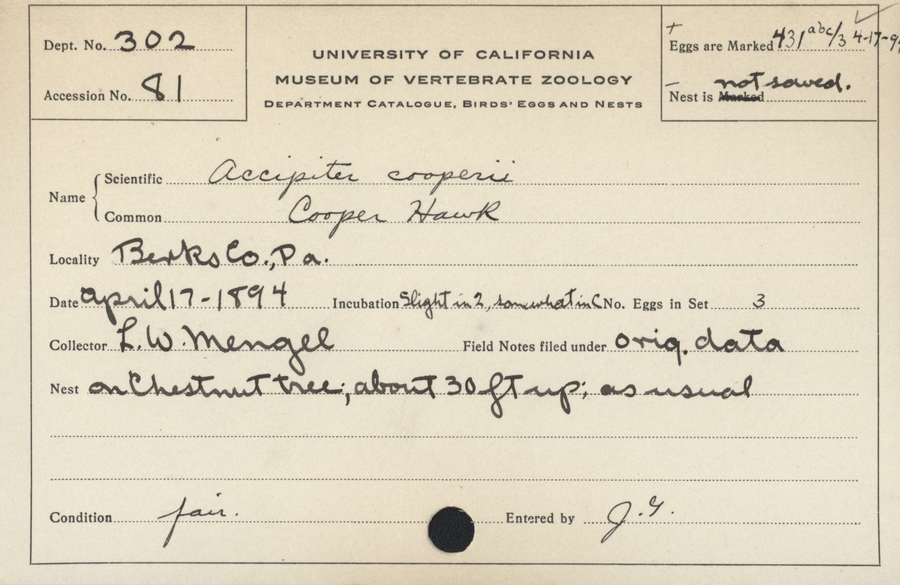 Dept. No. 302
Accession No. 81
UNIVERSITY OF CALIFORNIA
MUSEUM OF VERTEBRATE ZOOLOGY
DEPARTMENT CATALOGUE, BIRDS' EGGS AND NESTS
+
Eggs are Marked 431 abc/3 4-17-94
— not saved.
Nest is Marked
Name
Scientific Accipiter cooperii
Common Cooper Hawk
Locality Berks Co., Pa.
Date April 17-1894 Incubation Slight in 2, somewhat in C No. Eggs in Set 3
Collector L. W. Mengel Field Notes filed under orig. data
Nest on Chestnut tree; about 30 ft up; as usual
Condition fair. Entered by J. G.